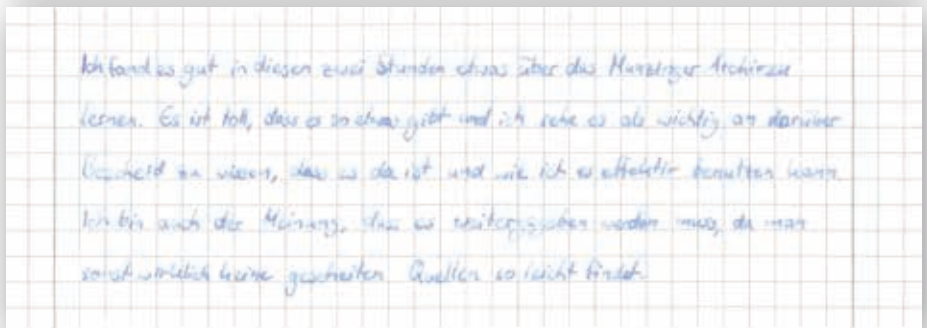 Ich fand es gut in diesen zwei Stunden etwas über das Munzinger Archiv zu
lernen. Es ist toll, dass es so etwas gibt und ich sehe es als wichtig an darüber
Bescheid zu wissen, dass es da ist und wie ich es effektiv benutzen kann.
Ich bin auch der Meinung, dass es weitergegeben werden muss, da man
sonst wirklich keine gescheiten Quellen so leicht findet.